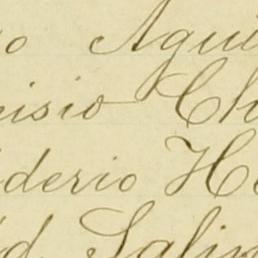 o Agui
isio Ch
derio He
d Salin